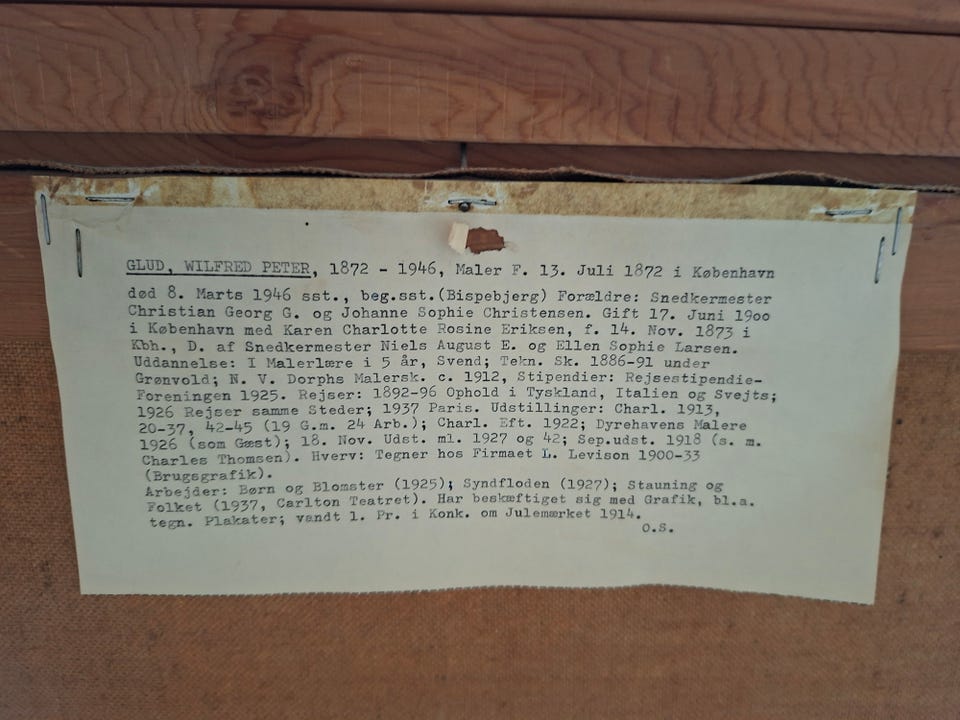 GLUD, WILFRED PETER, 1872 - 1946, Maler F. 13. Juli 1872 i København
død 8. Marts 1946 sst., beg.sst.(Bispebjerg) Forældre: Snedkermester
Christian Georg G. og Johanne Sophie Christensen. Gift 17. Juni 19oo
i København med Karen Charlotte Rosine Eriksen, f. 14. Nov. 1873 i
Kbh., D. af Snedkermester Niels August E. og Ellen Sophie Larsen.
Uddannelse: I Malerlære i 5 år, Svend; Tekn. Sk. 1886-91 under
Grønvold; N. V. Dorphs Malersk. c. 1912, Stipendier: Rejsestipendie-
Foreningen 1925. Rejser: 1892-96 Ophold i Tyskland, Italien og Svejts;
1926 Rejser samme Steder; 1937 Paris. Udstillinger: Charl. 1913,
20-37, 42-45 (19 G.m. 24 Arb.); Charl. Eft. 1922; Dyrehavens Malere
1926 (som Gæst); 18. Nov. Udst. ml. 1927 og 42; Sep.udst. 1918 (s. m.
Charles Thomsen). Hverv: Tegner hos Firmaet L. Levison 1900-33
(Brugsgrafik).
Arbejder: Børn og Blomster (1925); Syndfloden (1927); Stauning og
Folket (1937, Carlton Teatret). Har beskæftiget sig med Grafik, bl.a.
tegn. Plakater; vandt 1. Pr. i Konk. om Julemærket 1914.
O.S.